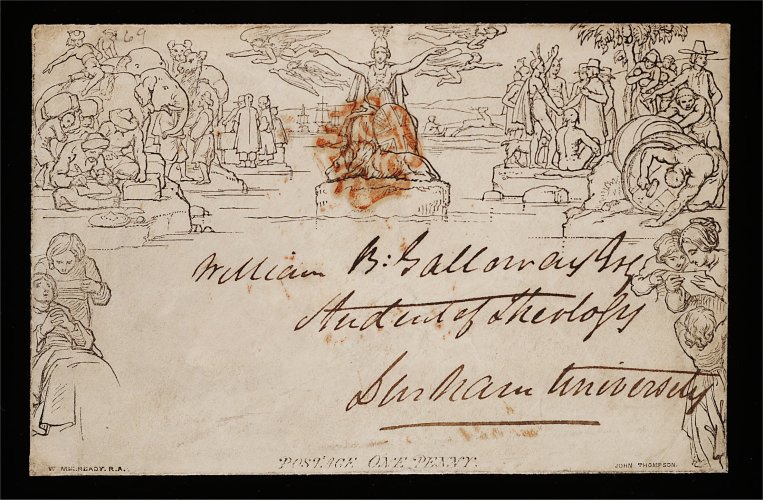 69
William B: Galloway Esq
Student of Theology
Durham University
POSTAGE ONE PENNY.
W. MULREADY. R.A.
JOHN THOMPSON.